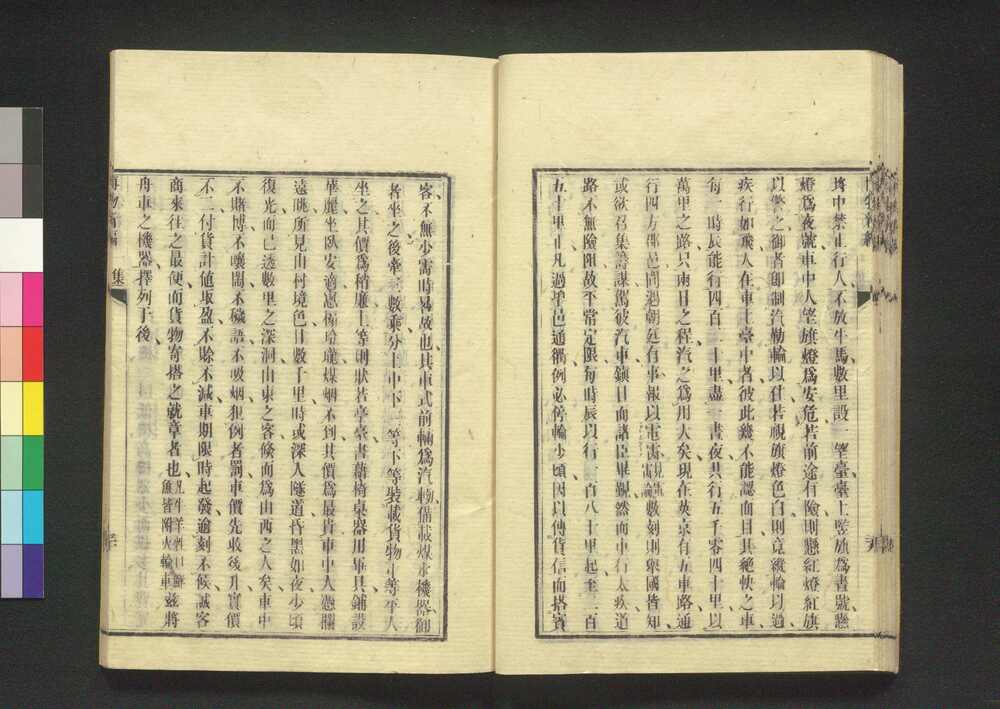 埒中禁止行人不放牛馬數里設一望臺臺上竪旗爲晝號懸
燈爲夜號車中人望旗燈爲安危若前途有險則懸紅燈紅旗
以警之御者即制汽勒輪以待若視旗燈色白則竟縱輪以過
疾行如飛人在車上臺中者彼此幾不能認面目其絶快之車
每一時辰能行四百二十里盡一晝夜共行五千零四十里以
萬里之路只兩日之程汽之爲用大矣現在英京有五車路通
行四方郡邑間遇朝廷有事報以電電線數刻則舉國皆知
或欲召集籌謀駕彼汽車鎭日而諸臣畢覲然而中行太疾道
路不無險阻故平常定限每時辰以行一百八十里起至二百
五十里止凡過埠邑通衢例必停輪少頃因以傳貨信而搭賓
客不無少需時晷故也其車式前輛爲汽備載煤水機器御
者坐之後牽數乘分上中下三等下等裝載貨物中等平人
坐之其價爲稍廉上等則狀若亭臺書籍椅桌器用畢具鋪設
華麗坐臥安適窗煤烟不到其價爲最貴車中人憑欄
遠眺所見山村境色日數千里時或深入隧道昏黑如夜少頃
復光而已透數里之深洞山東之客倏而爲山西之人矣車中
不賭博不嚷鬧不穢語不吸烟犯例者罰車價先收後升實價
不二付貨計値取盈不賒不減車期限時起發逾刻不候誠客
商來往之最便而貨物寄搭之就章者也凡牛羊牲口鮮魚皆附火輪車茲將
舟車之機器擇列于後
集